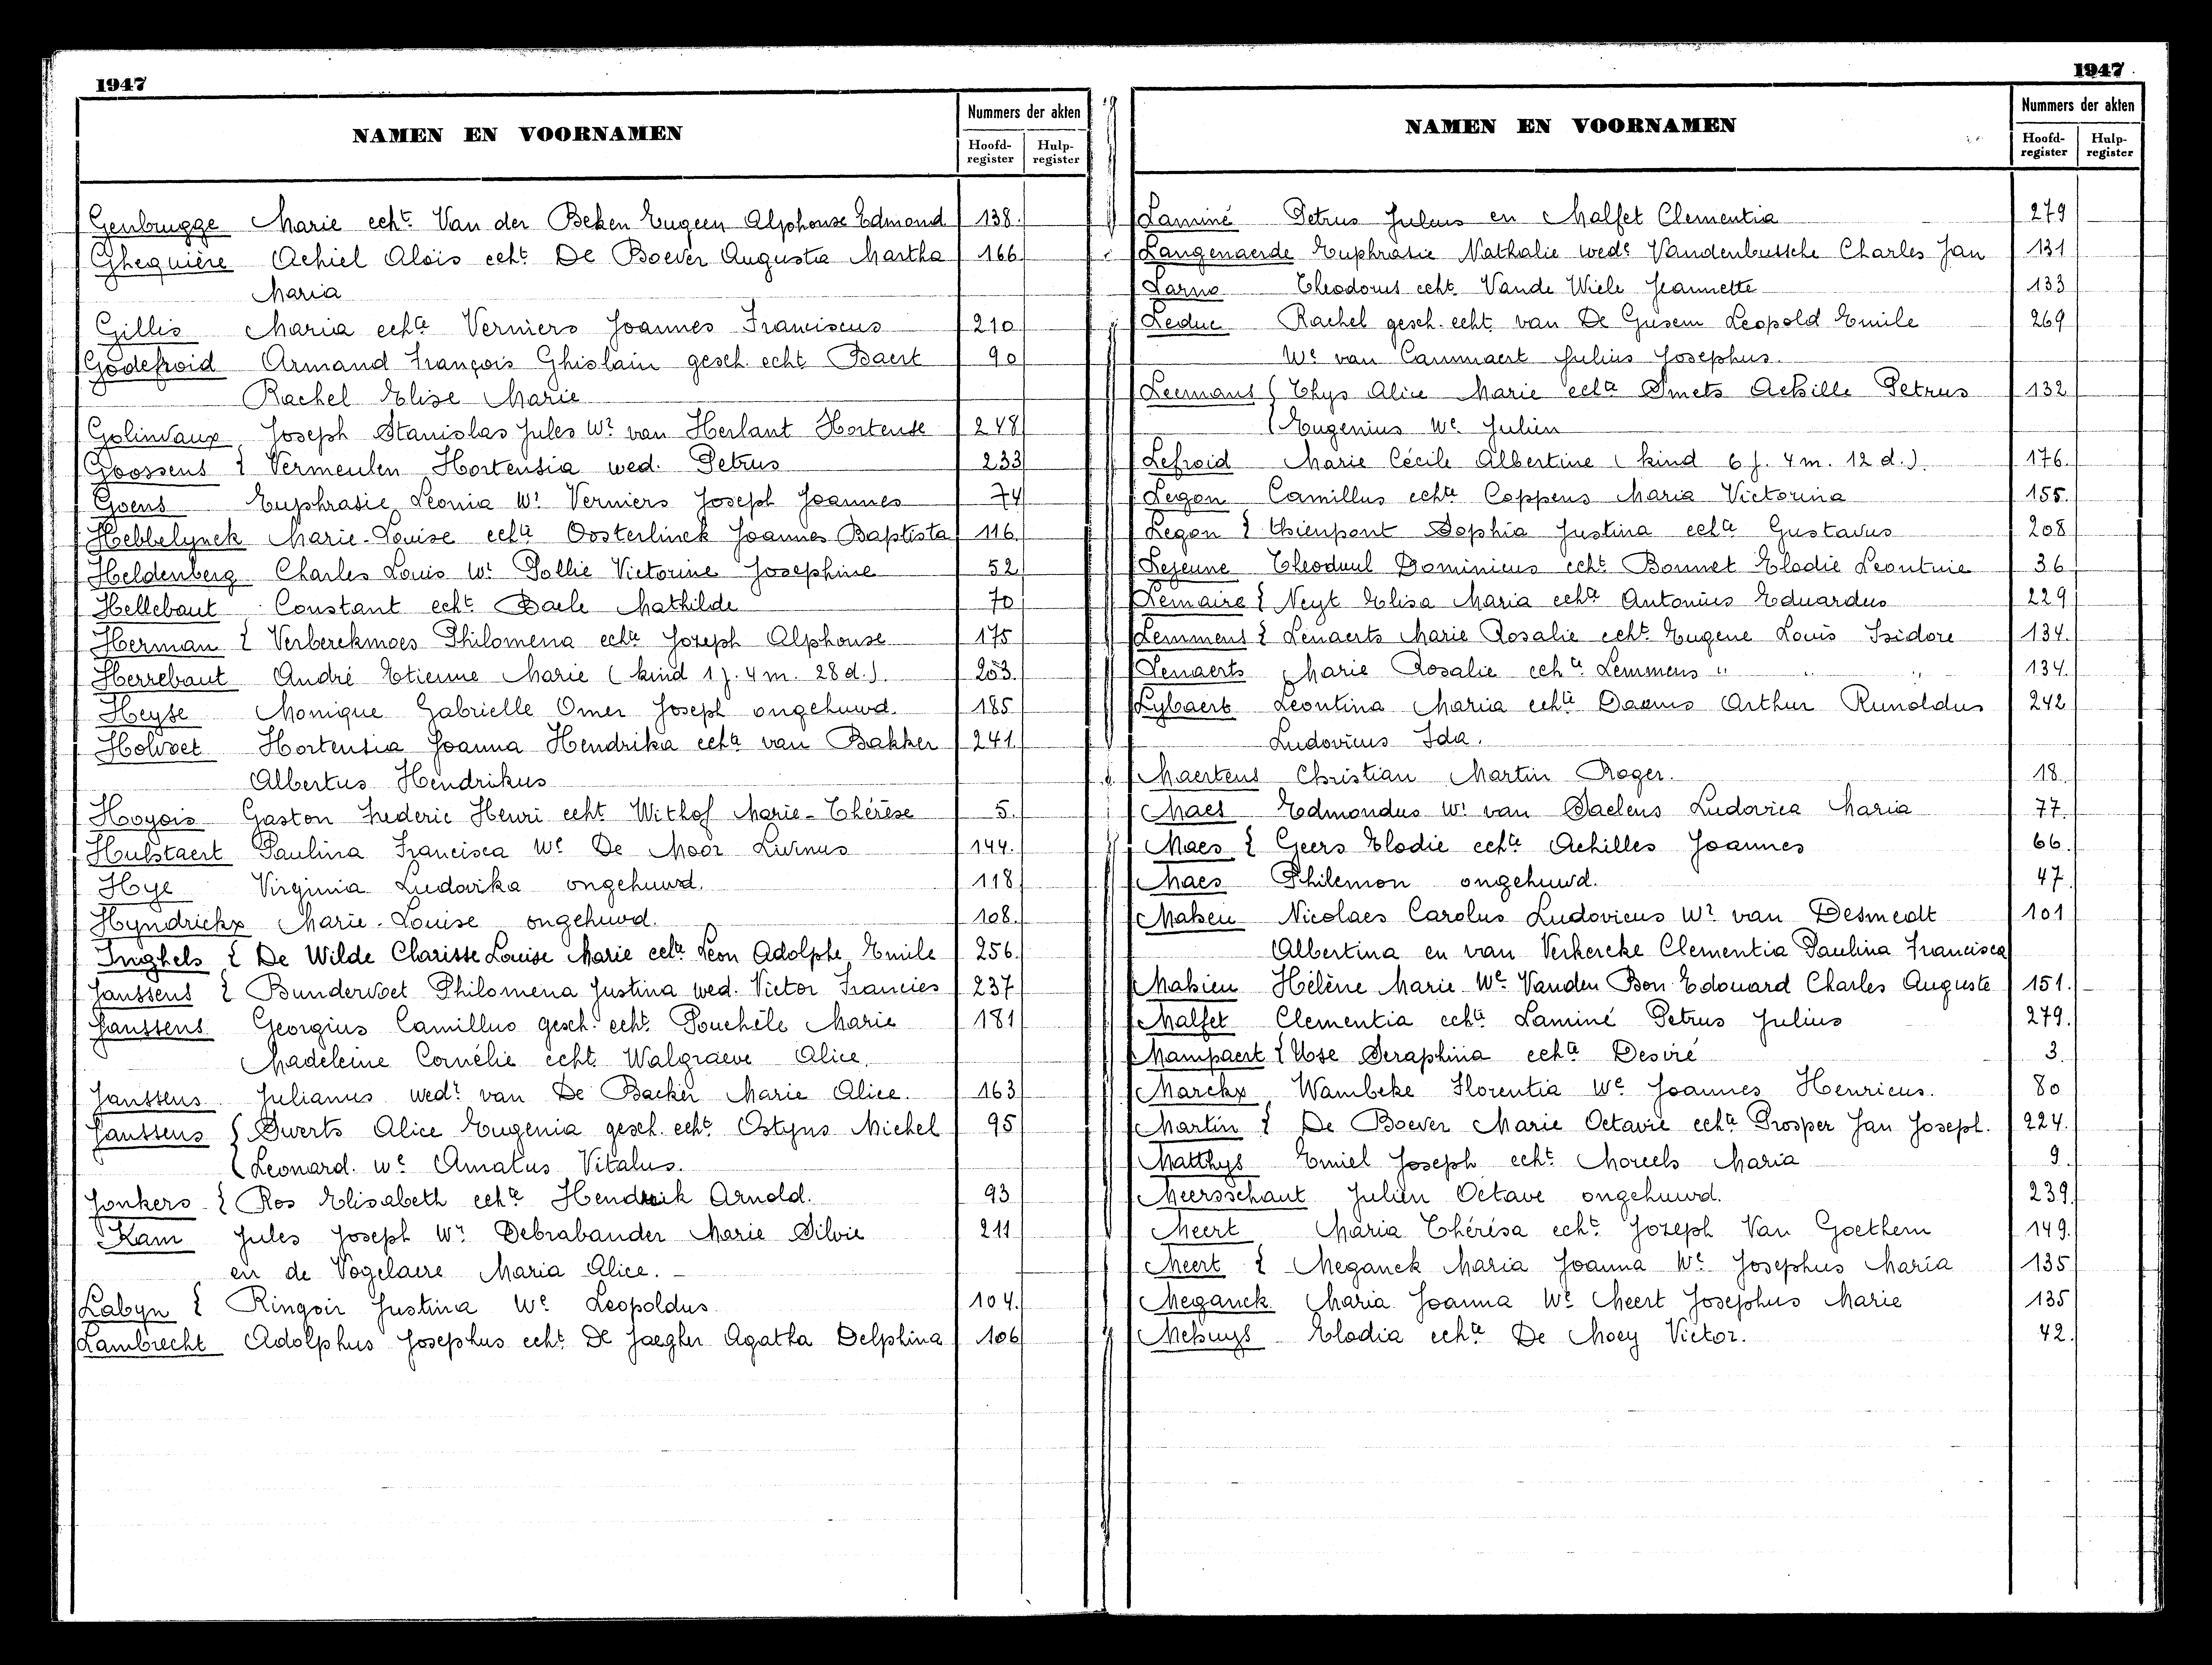 1947
NAMEN EN VOORNAMEN
Nummers der akten
Hoofd-register
Hulp-register
Genbrugge Marie echt. Van der Beken Eugeen Alphonse Edmond 138.
Ghequière Achiel Aloïs echt. De Boever Augusta Martha 166
Maria
Gillis Maria echte Verniers Joannes Franciscus 210
Godefroid Armand François Ghislain gesch. echt. Baert 90
Rachel Elise Marie
Golinvaux Joseph Stanislas Jules Wr van Herlant Hortense 248
Goossens { Vermeulen Hortensia wed. Petrus 233
Goens Euphrasie Leonia We Verniers Joseph Joannes 74
Hebbelynck Marie-Louise echte Oosterlinck Joannes Baptista 116.
Heldenberg Charles Louis Wr Pollie Victorine Josephine 52
Hellebaut Constant echt. Baele Mathilde 70
Herman { Verberckmoes Philomena echte Jozeph Alphonse 175
Herrebaut André Etienne Marie (kind 1 j. 4 m. 28 d.). 253.
Heyse Monique Gabrielle Omer Joseph ongehuwd. 185
Holvoet Hortensia Joanna Hendrika echte van Bakker 241
Albertus Hendrikus
Hoyois Gaston Frederic Henri echt. Withof Marie-Thérèse 5.
Hulstaert Paulina Francisca We De Moor Livinus 144.
Hye Virginia Ludovika ongehuwd. 118
Hyndrickx Marie-Louise ongehuwd. 108.
Inghels { De Wilde Charisse Louise Marie echte Leon Adolphe Emile 256.
Janssens { Bundervoet Philomena Justina wed. Victor Francies 237
Janssens Georgius Camillus gesch. echt. Pouchèle Marie 181
Madeleine Cornélie echt. Walgraeve Alice.
Janssens Julianus wedr van De Backer Marie Alice. 163
Janssens { Swerts Alice Eugenia gesch. echte Ostyns Michel 95
Leonard. We Amatus Vitalus.
Jonkers { Ros Elisabeth echte Hendrik Arnold. 93
Kam Jules Joseph Wr Debrabander Marie Silvie 211
en de Vogelaere Maria Alice.
Labyn { Ringoir Justina We Leopoldus 104.
Lambrecht Adolphus Josephus echt. De Jaegher Agatha Delphina 106
1947
NAMEN EN VOORNAMEN
Nummers der akten
Hoofd-register
Hulp-register
Laminé Petrus Juleus en Malfet Clementia 279
Langenaerde Euphrasie Nathalie wede Vandenbussche Charles Jan 131
Larno Theodorus echt. Vande Wiele Jeannette 133
Leduc Rachel gesch. echt. van De Gusem Leopold Emile 269
We van Cammaert Julius Josephus.
Leemans { Thys Alice Marie echte Smets Achille Petrus 132
Eugenius We Julien
Lefroid Marie Cécile Albertine (kind 6 j. 4 m. 12 d.). 176.
Legon Camillus echte Coppens Maria Victorina 155.
Legon { Thienpont Sophia Justina echte Gustavus 208
Lejeune Theoduul Dominicus echt. Bonnet Elodie Leontnie 36
Lemaire { Neyt Elisa Maria echte Antonius Eduardus 229
Lemmens { Lenaerts Marie Rosalie echte Eugene Louis Isidore 134.
Lenaerts Marie Rosalie echte Lemmens " " " 134.
Lybaert Leontina Maria echte Daems Arthur Runoldus 242
Ludovicus Ida.
Maertens Christian Martin Roger. 18.
Maes Edmondus Wr van Baelens Ludovica Maria 77.
Maes { Geers Elodie echte Achilles Joannes 66.
Maes Philemon ongehuwd. 47
Mahieu Nicolaes Carolus Ludovicus Wr van Desmedt 101
Albertina en van Verkercke Clementia Paulina Francisca
Mahieu Hélène Marie We Vanden Bon Edouard Charles Auguste 151.
Malfet Clementia echte Laminé Petrus Julius 279.
Mampaert { Uose Seraphina echte Desiré 3.
Marckx Wambeke Florentia We Joannes Henricus. 80
Martin { De Boever Marie Octavie echte Prosper Jan Joseph. 224.
Matthys Emiel Joseph echt. Moreels Maria 9.
Meersschaut Julien Octave ongehuwd. 239.
Meert Maria Thérésa echte Jozeph Van Goethem 149.
Meert { Meganck Maria Joanna We Josephus Maria 135
Meganck Maria Joanna We Meert Josephus Marie 135
Mehuys Elodia echte De Moey Victor. 42.